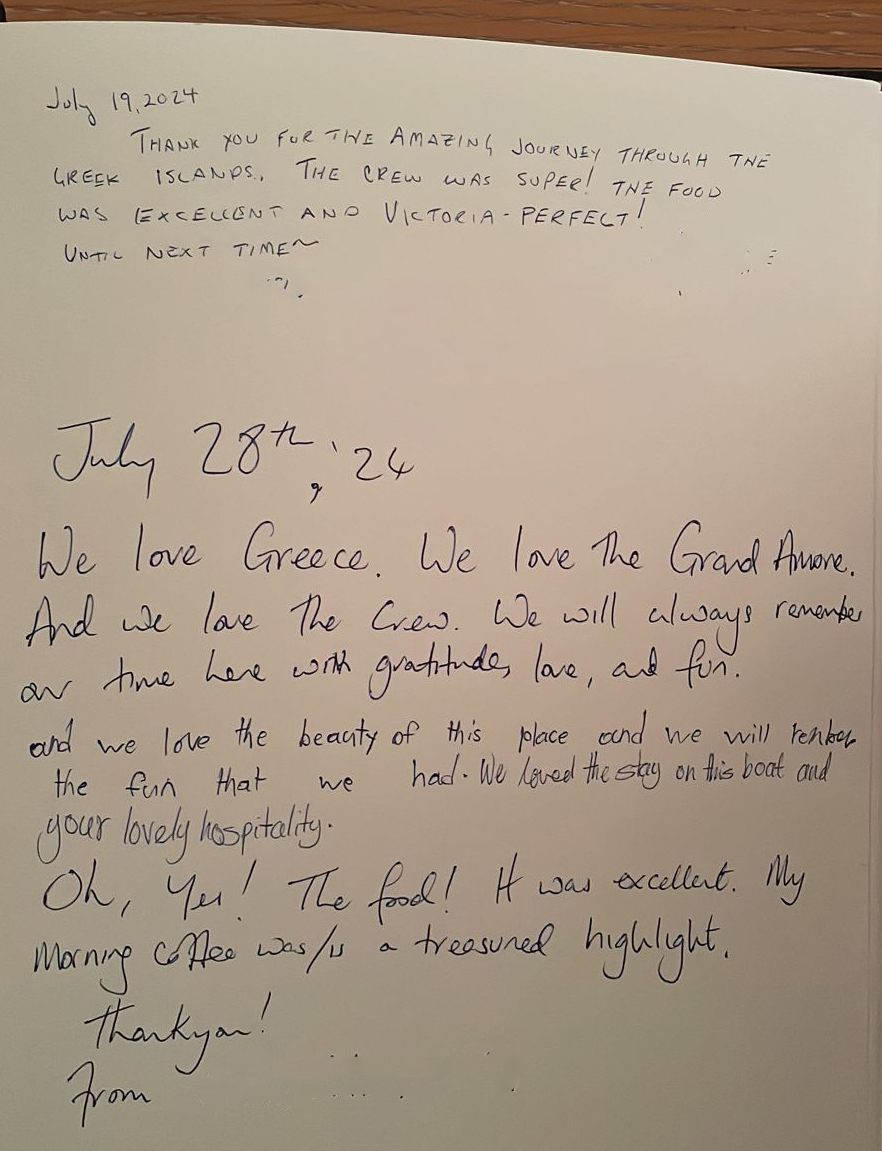 July 19, 2024
THANK YOU FOR THE AMAZING JOURNEY THROUGH THE
GREEK ISLANDS. THE CREW WAS SUPER! THE FOOD
WAS EXCELLENT AND VICTORIA - PERFECT!
UNTIL NEXT TIME~
July 28th, '24
We love Greece. We love The Grand Amore.
And we love The Crew. We will always remember
our time here with gratitude, love, and fun.
and we love the beauty of this place and we will
the fun that we had. We loved the stay on this boat and
your lovely hospitality.
Oh, Yes! The food! It was excellent. My
Morning coffee was/is a treasured highlight.
Thankyou!
From